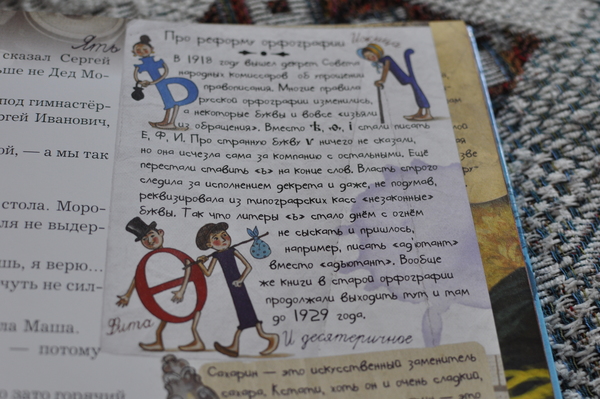 сказал Сергей
ьше не Дед Мо-
под гимнастёр-
ргей Иванович,
ой, — а мы так
стола. Моро-
ля не выдер-
шь, я верю...
чуть не сил-
ла Маша.
— потому
зато горячий
Ять
Про реформу орфографии
Ижица
В 1918 году вышел декрет Совета
народных комиссаров об упрощении
правописания. Многие правила
русской орфографии изменились,
а некоторые буквы и вовсе «изъяли
из обращения». Вместо ѣ, ѳ, і стали писать
Е, Ф, И. Про странную букву ѵ ничего не сказали,
но она исчезла сама за компанию с остальными. Ещё
перестали ставить «ъ» на конце слов. Власть строго
следила за исполнением декрета и даже, не подумав,
реквизировала из типографских касс «незаконные»
буквы. Так что литеры «ъ» стало днём с огнём
не сыскать и пришлось,
например, писать «ад'ютант»
вместо «адъютант». Вообще
же книги в старой орфографии
продолжали выходить тут и там
до 1929 года.
Фита
И десятеричное
Сахарин — это искусственный заменитель
сахара. Кстати, хоть он и очень сладкий,
— это